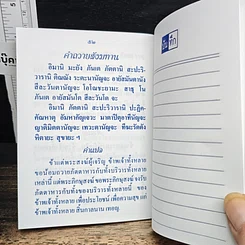 ๕๒
คำถวายสังฆทาน
อิมานิ มะยัง ภันเต ภัตตานิ สะปะริ-
วารานิ ภิกขุสังฆัสสะ
สีละวันตานัญจะ โอโณชะยามะ สาธุ โน
ภันเต
วารานิ ปะฏิค-
คัณหาตุ อัมหากัญเจวะ มาตาปิตุอาทีนัญจะ
ญาติมิตตานัญจะ เทวะตานัญจะ ทีฆะรัตตัง
หิตายะ สุขายะ ฯ
คำแปล
ข้าแต่พระสงฆ์ผู้เจริญ ข้าพเจ้าทั้งหลาย
ขอน้อมถวายภัตตาหารกับทั้งบริวารทั้งหลาย
เหล่านี้ แด่พระภิกษุสงฆ์ ขอพระภิกษุสงฆ์ จงรับ
ภัตตาหารกับทั้งของบริวารทั้งหลายนี้ ของ
ข้าพเจ้าทั้งหลาย เพื่อประโยชน์ เพื่อความสุข แก่
ข้าพเจ้าทั้งหลาย สิ้นกาลนาน เทอญ.